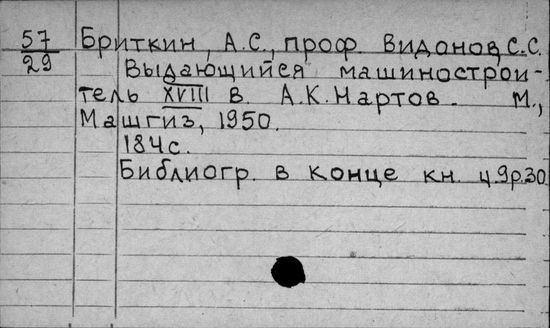 57 Бриткин, А.С., проф. Видонов, С.С.
29 Выдающийся машинострои-
тель XVIII в. А.К. Нартов. М.,
Машгиз, 1950.
184с.
Библиогр. в конце кн. ц.9р.30